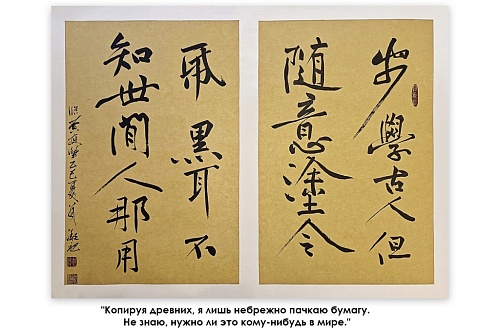 步學古人但
隨意塗令
帋黑耳不
知世間人那用
臨黃庭堅乙巳夏
"Копируя древних, я лишь небрежно пачкаю бумагу.
Не знаю, нужно ли это кому-нибудь в мире."